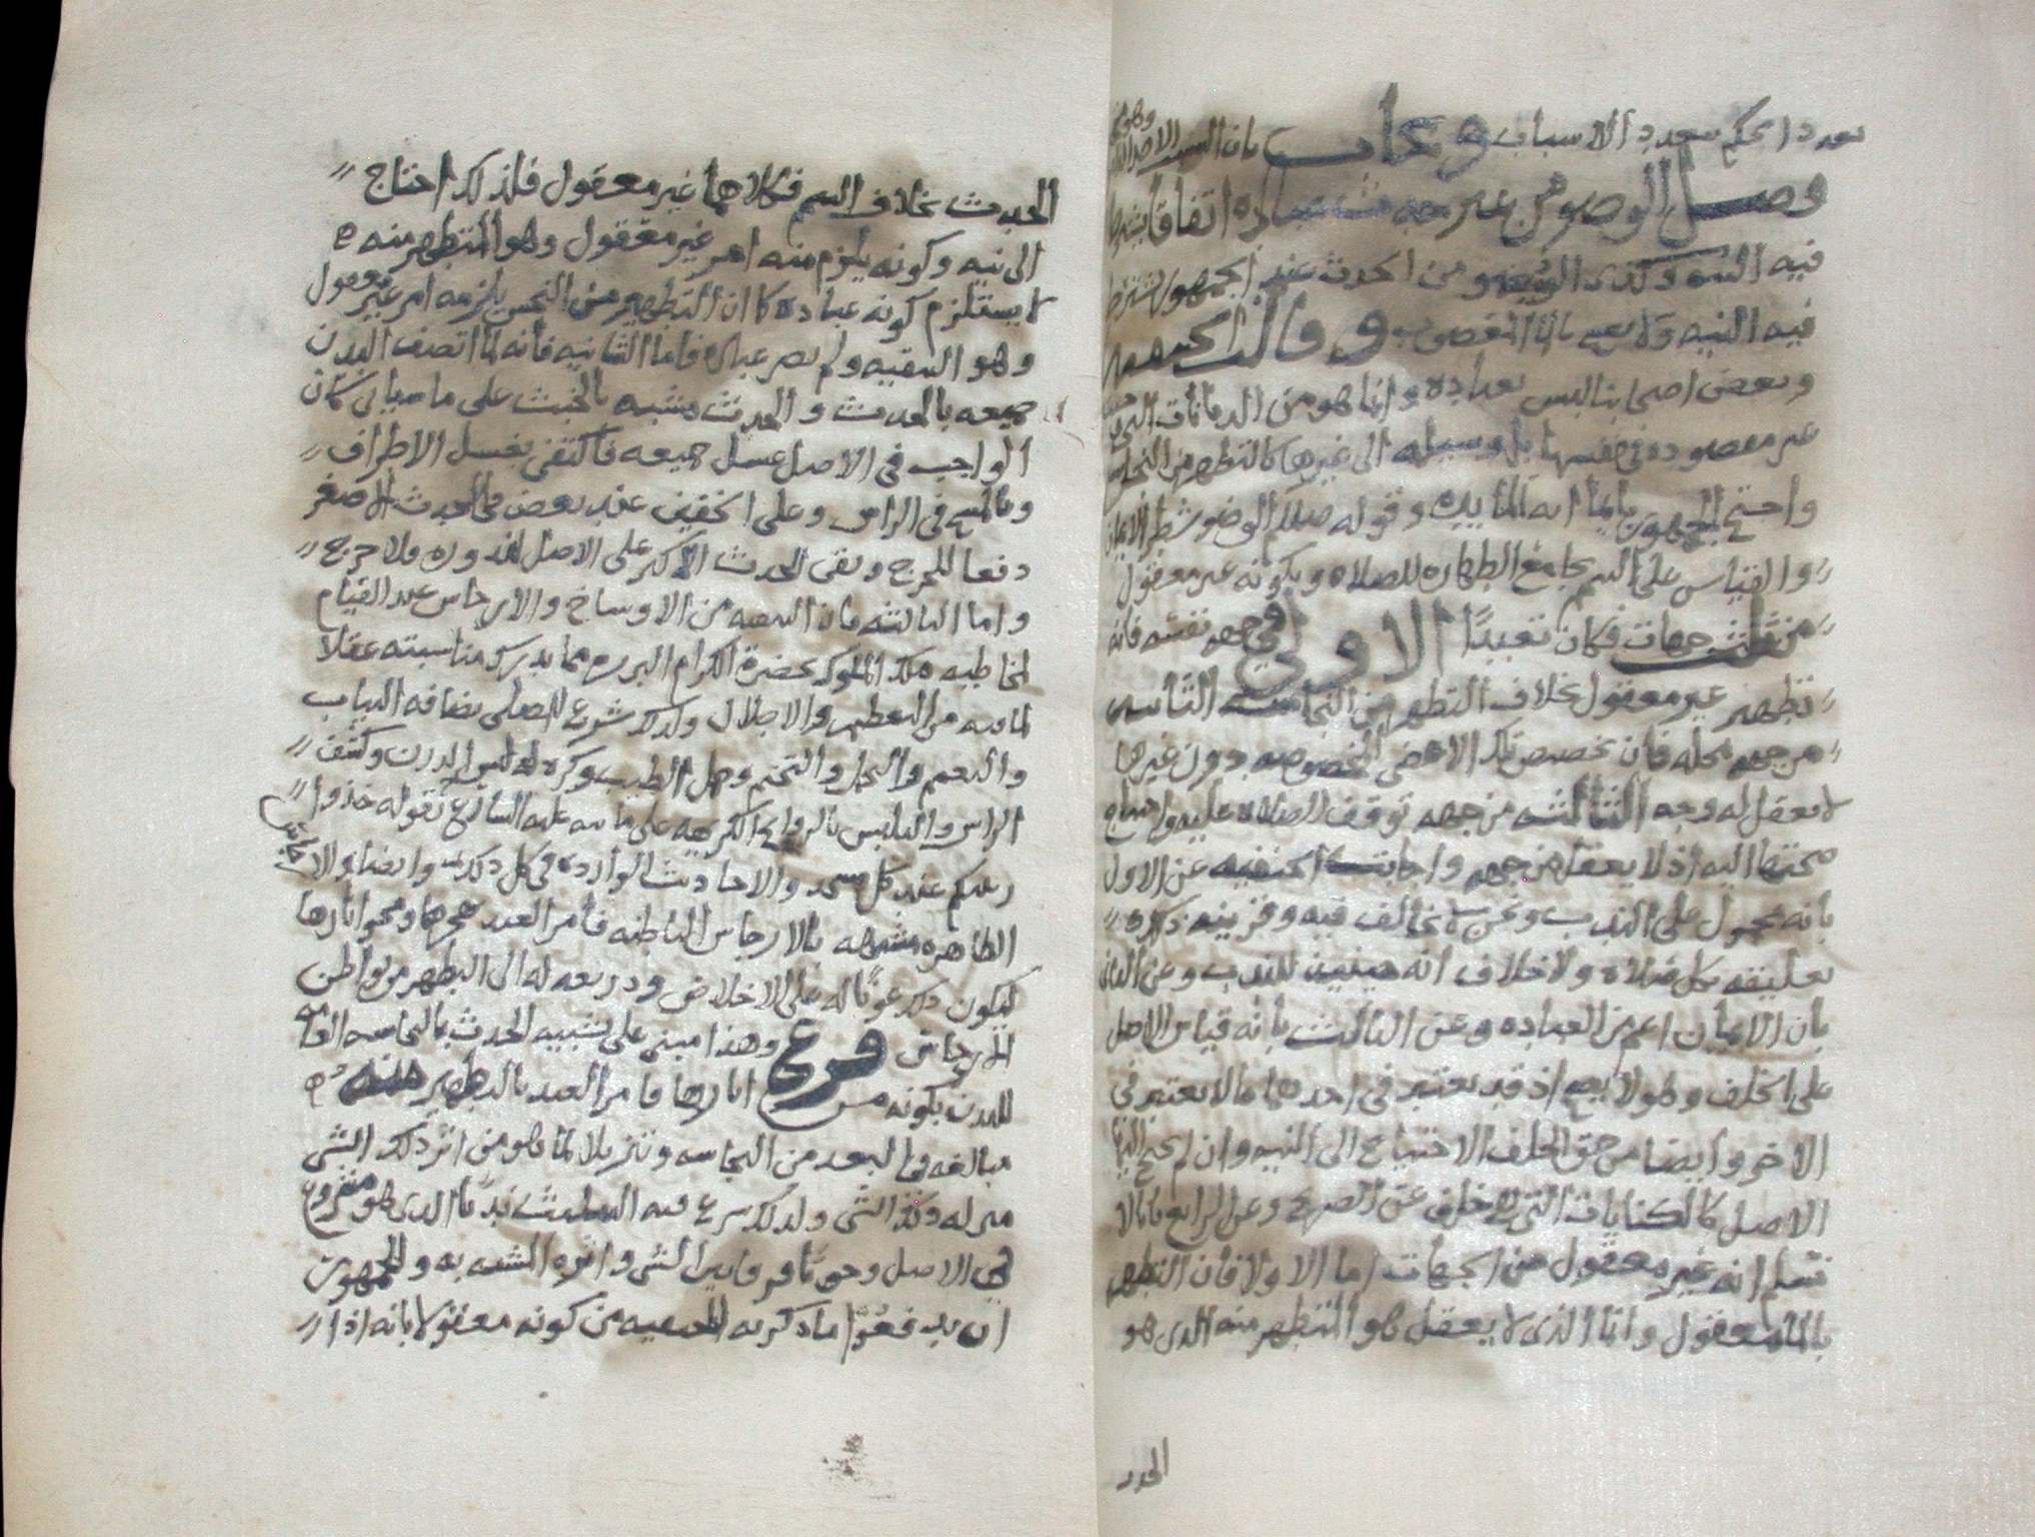 تعدد الحكم بتعدد الاسباب ويجاب بان السبب الاصل
فصل الوضو من غير حدث عباده اتفاقا يشترط
فيه النيه وكذى الوضو من الحدث عند الجمهور يشترط
فيه النيه ولا يصح بالما المغصوب وقالت الحنفيه
وبعض اصحابنا ليس بعباده وانما هو من الديانات التي
غير مقصوده في نفسها بل وسيله الى غيرها كالتطهر من النجاس
واحتج الجمهور بايما ايه المايده وقوله صلم الوضو شطر الايمان
والقياس على التيمم بجامع الطهاره للصلاه وبكونه غير معقول
من ثلث جهات فكان تعبدًا الاولى في جهه نفسه فانه
تطهير غير معقول بخلاف التطهر من النجاسه الثانيه
من جهه محله فان تخصيص تلك الاعضى المخصوصه دون غيرها
لا يعقل له وجه الثالثه من جهه توقف الصلاه عليه واحتياج
صحتها اليه اذ لا يعقل من جهه واجابت الحنفيه عن الاول
بانه محمول على الندب ونحن لا نخالف فيه وقرينه ذكره
تعليقه بكل صلاه ولا خلاف انه حينئذ للندب وعن الثاني
بان الايمان اعم من العباده وعن الثالث بانه قياس الاصل
على الخلف وهو لا يصح اذ قد يعتبر في احدهما ما لا يعتبر في
الاخر وايضا من حق الخلف الاحتياج الى النيه وان لم يحتج اليها
الاصل كالكنايات التي هي خلف عن الصريح وعن الرابع بانا لا
نسلم انه غير معقول من الجهات اما الاولا فان التطهر
بالما معقول وانما الذي لا يعقل هو المتطهر منه الذي هو
الحدث
الحدث بخلاف التيمم فكلاهما غير معقول فلذلك احتاج
الى نيه وكونه يلزم منه امر غير معقول وهو المتطهر منه
لا يستلزم كونه عباده كما ان التطهير من النجس يلزمه امر غير معقول
وهو التنقيه ولم يصر عباده فاما الثانيه فانه لما اتصف البدن
جميعه بالحدث والحدث مشبه بالخبث على ما سياتي كان
الواجب في الاصل غسل جميعه فاكتفى بغسل الاطراف
وبالمسح في الراس وعلى الخفين عند بعض في الحدث الاصغر
دفعا للحرج وبقى الحدث الاكبر على الاصل لندوره ولا حرج
واما الثالثه فان التنقيه من الاوساخ والارجاس عند القيام
لمخاطبه ملك الملوك بحضرة الكرام البرره مما يدرك مناسبته عقلا
لما فيه من التعظيم والاجلال ولذلك شرع للمصلي نضافه الثياب
والتعمم والتجمل والتختم وحمل الطيب وكره له لبس الدرن وكشف
الراس والتلبس بالروايح الكريهه على ما نبه عليه الشارع بقوله خذوا
زينتكم عند كل مسجد والاحاديث الوارده في كل ذلك وايضا فالارجاس
الظاهره مشبهه بالارجاس الباطنه فامر العبد بمحوها ومحو اثارها
ليكون ذلك عونًا له على الاخلاص وذريعه له الى التطهر من بواطن
الارجاس فرع وهذا مبني على تشبيه الحدث بالنجاسه القائمه
للبدن بكونه من اثارها فامر العبد بالتطهير منه
مبالغه في البعد من النجاسه وتنزيلا لما هو من اثر ذلك الشي
منزله ذلك الشي ولذلك شرع فيه التثليث ندبًا الذي هو مشروع
في الاصل وحوبًا فرقا بين الشي واثره المشبه به وللجمهور
ان يدفعوا ما ذكرته الحنفيه من كونه معقولا بانه اذا